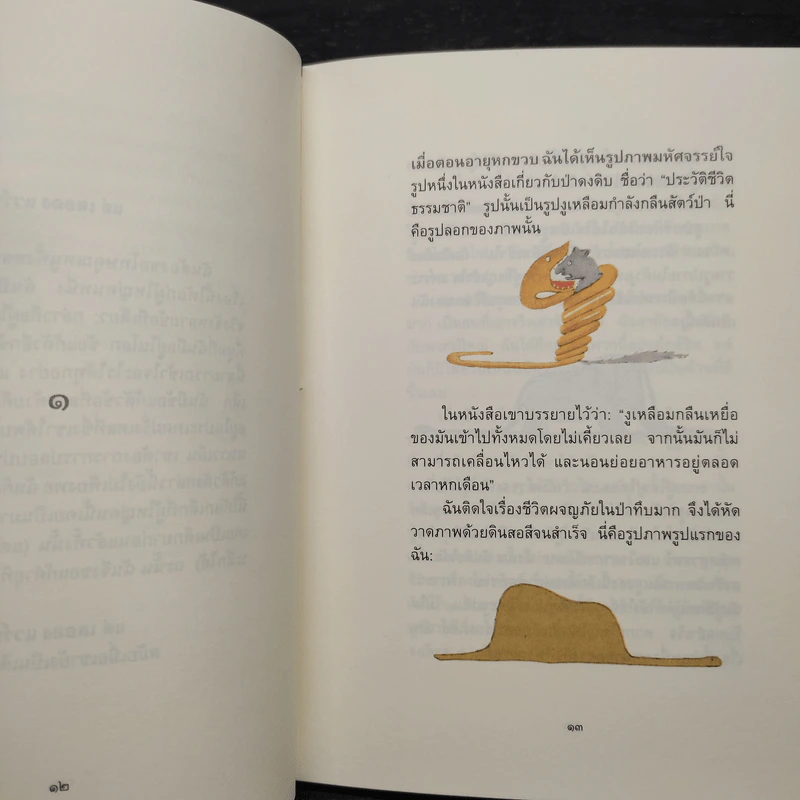 ๑
๑๒
เมื่อตอนอายุหกขวบ ฉันได้เห็นรูปภาพมหัศจรรย์ใจ
รูปหนึ่งในหนังสือเกี่ยวกับป่าดงดิบ ชื่อว่า “ประวัติชีวิต
ธรรมชาติ” รูปนั้นเป็นรูปงูเหลือมกำลังกลืนสัตว์ป่า นี่
คือรูปลอกของภาพนั้น
ในหนังสือเขาบรรยายไว้ว่า: “งูเหลือมกลืนเหยื่อ
ของมันเข้าไปทั้งหมดโดยไม่เคี้ยวเลย จากนั้นมันก็ไม่
สามารถเคลื่อนไหวได้ และนอนย่อยอาหารอยู่ตลอด
เวลาหกเดือน”
ฉันติดใจเรื่องชีวิตผจญภัยในป่าทึบมาก จึงได้หัด
วาดภาพด้วยดินสอสีจนสำเร็จ นี่คือรูปภาพรูปแรกของ
ฉัน:
๑๓